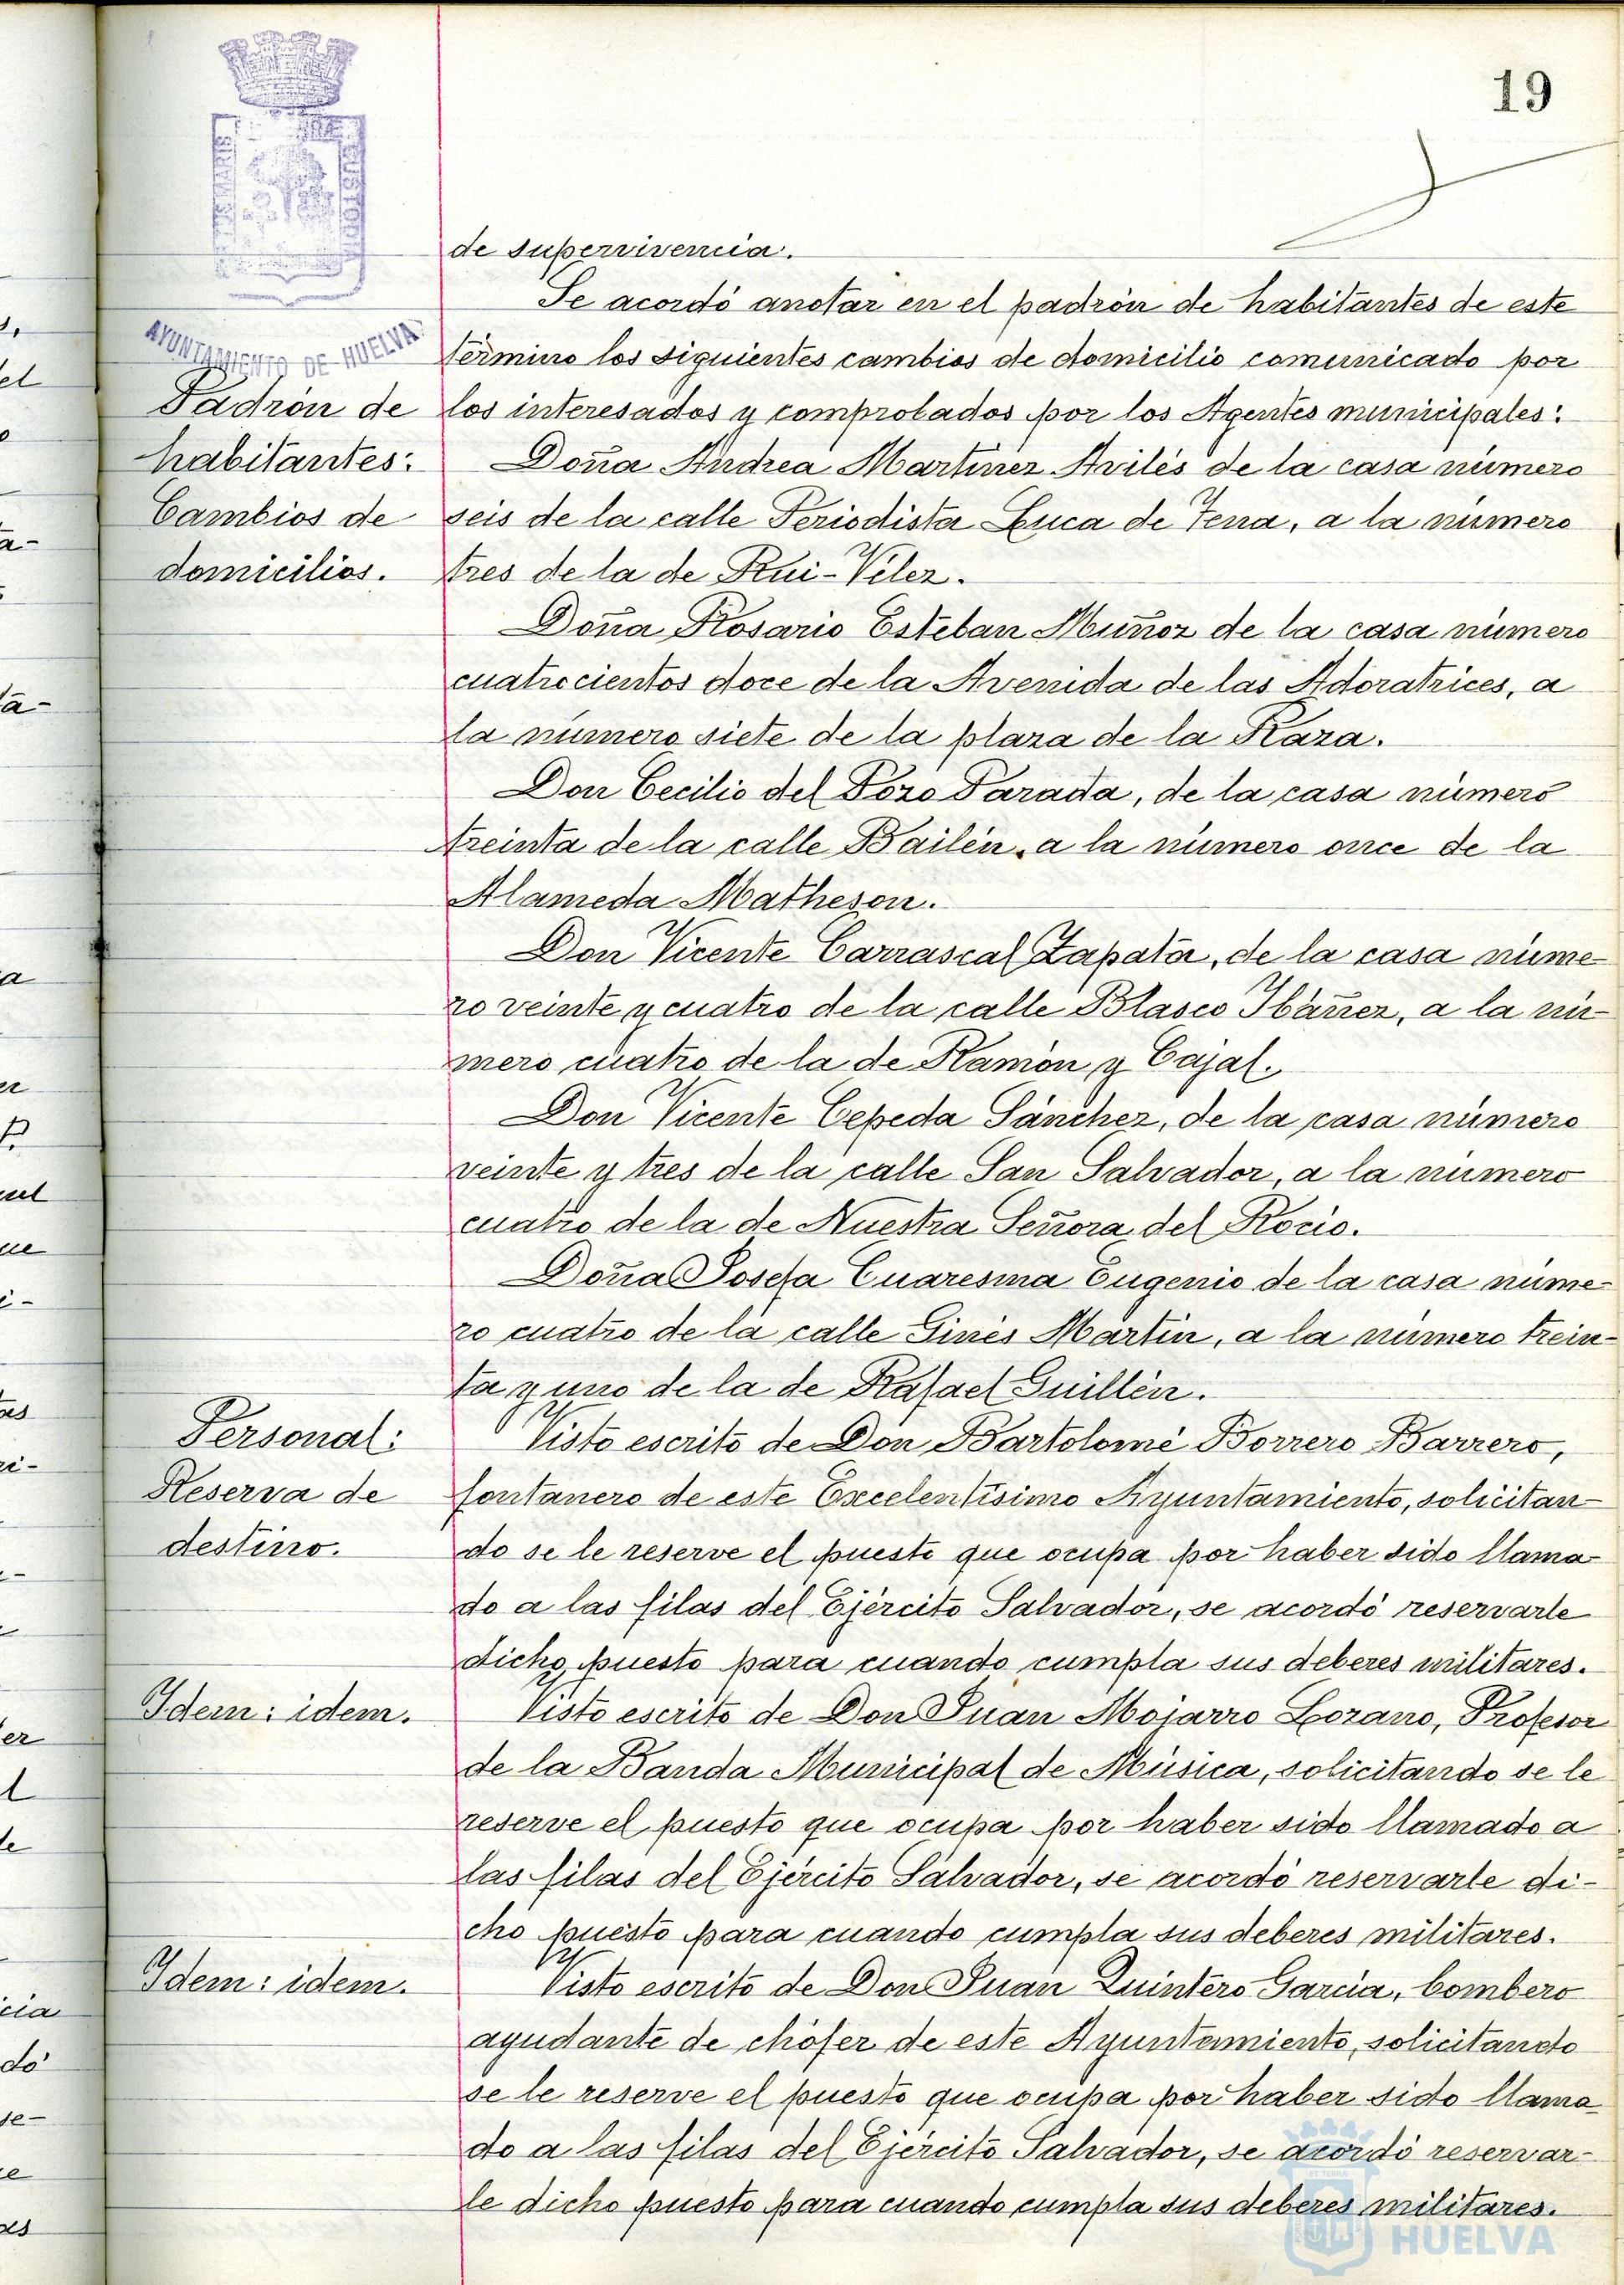 19
de supervivencia.
Se acordó anotar en el padrón de habitantes de este
AYUNTAMIENTO DE HUELVA
término los siguientes cambios de domicilio comunicado por
Padrón de
los interesados y comprobados por los Agentes municipales:
habitantes:
Doña Andrea Martínez Avilés de la casa número
Cambios de
seis de la calle Periodista Luca de Tena, a la número
domicilios.
tres de la de Rui-Vélez.
Doña Rosario Esteban Muñoz de la casa número
cuatrocientos doce de la Avenida de las Adoratrices, a
la número siete de la plaza de la Raza.
Don Cecilio del Pozo Parada, de la casa número
treinta de la calle Bailén, a la número once de la
Alameda Matheson.
Don Vicente Carrascal Zapata, de la casa núme-
ro veinte y cuatro de la calle Blasco Ibáñez, a la nú-
mero cuatro de la de Ramón y Cajal.
Don Vicente Cepeda Sánchez, de la casa número
veinte y tres de la calle San Salvador, a la número
cuatro de la de Nuestra Señora del Rocío.
Doña Josefa Cuaresma Eugenio de la casa núme-
ro cuatro de la calle Ginés Martín, a la número trein-
ta y uno de la de Rafael Guillén.
Personal:
Visto escrito de Don Bartolomé Borrero Barrero,
Reserva de
fontanero de este Excelentísimo Ayuntamiento, solicitan-
destino.
do se le reserve el puesto que ocupa por haber sido llama-
do a las filas del Ejército Salvador, se acordó reservarle
dicho puesto para cuando cumpla sus deberes militares.
Idem: idem.
Visto escrito de Don Juan Mojarro Lozano, Profesor
de la Banda Municipal de Música, solicitando se le
reserve el puesto que ocupa por haber sido llamado a
las filas del Ejército Salvador, se acordó reservarle di-
cho puesto para cuando cumpla sus deberes militares.
Idem: idem.
Visto escrito de Don Juan Quintero García, bombero
ayudante de chófer de este Ayuntamiento, solicitando
se le reserve el puesto que ocupa por haber sido llama-
do a las filas del Ejército Salvador, se acordó reservar-
le dicho puesto para cuando cumpla sus deberes militares.
HUELVA